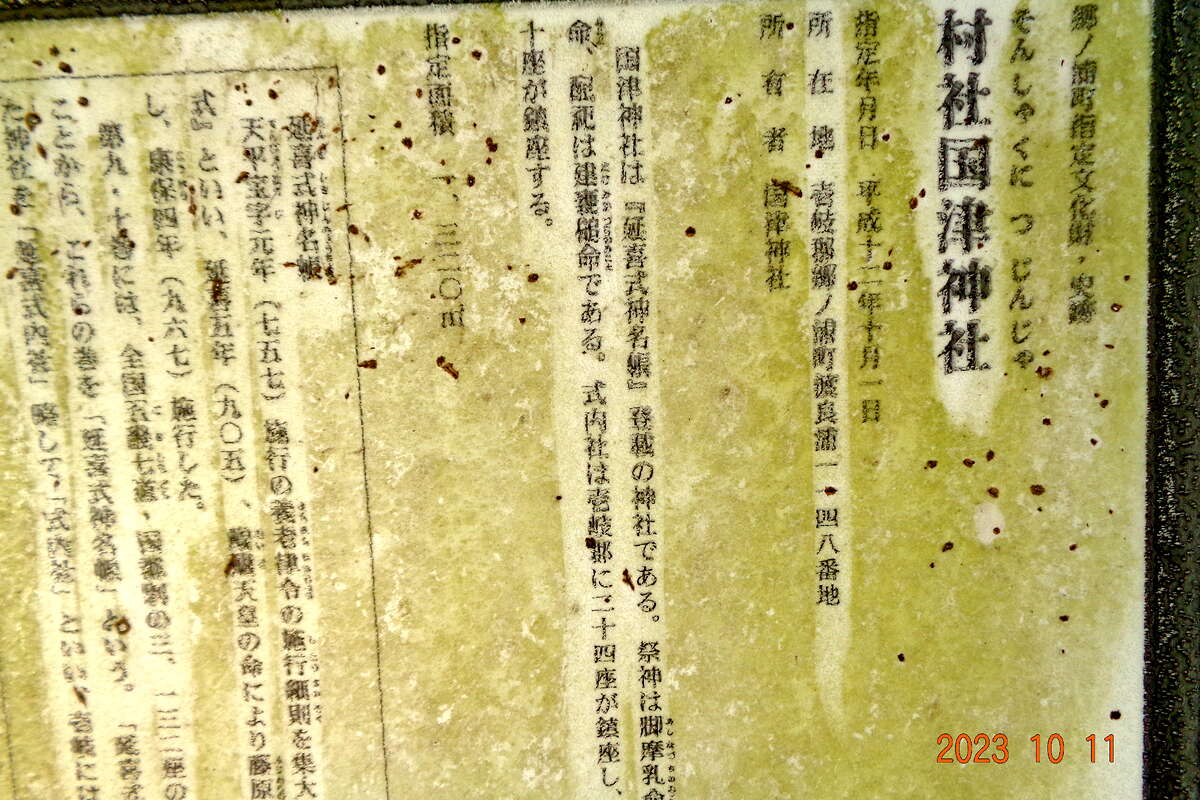 郷ノ浦町指定文化財・史跡
そんしゃくに つ じんじゃ
村社国津神社
指定年月日 平成十二年十月一日
所在地 壱岐郡郷ノ浦町渡良浦一一四八番地
所有者 国津神社
国津神社は『延喜式神名帳』登載の神社である。祭神は脚摩乳命
命、配祀は建甕槌命である。式内社は壱岐郡に二十四座が鎮座し、
十座が鎮座する。
指定面積 一、三三〇㎡
延喜式神名帳
天平宝字元年（七五七）施行の養老律令の施行細則を集大
式』といい、延喜五年（九〇五）、醍醐天皇の命により藤原
し、康保四年（九六七）施行した。
第九・十巻には、全国五畿七道、国郡別の三、一三二座の
ことから、これらの巻を「延喜式神名帳」という。「延喜式
た神社を「延喜式内社」略して「式内社」といい、壱岐には
2023 10 11